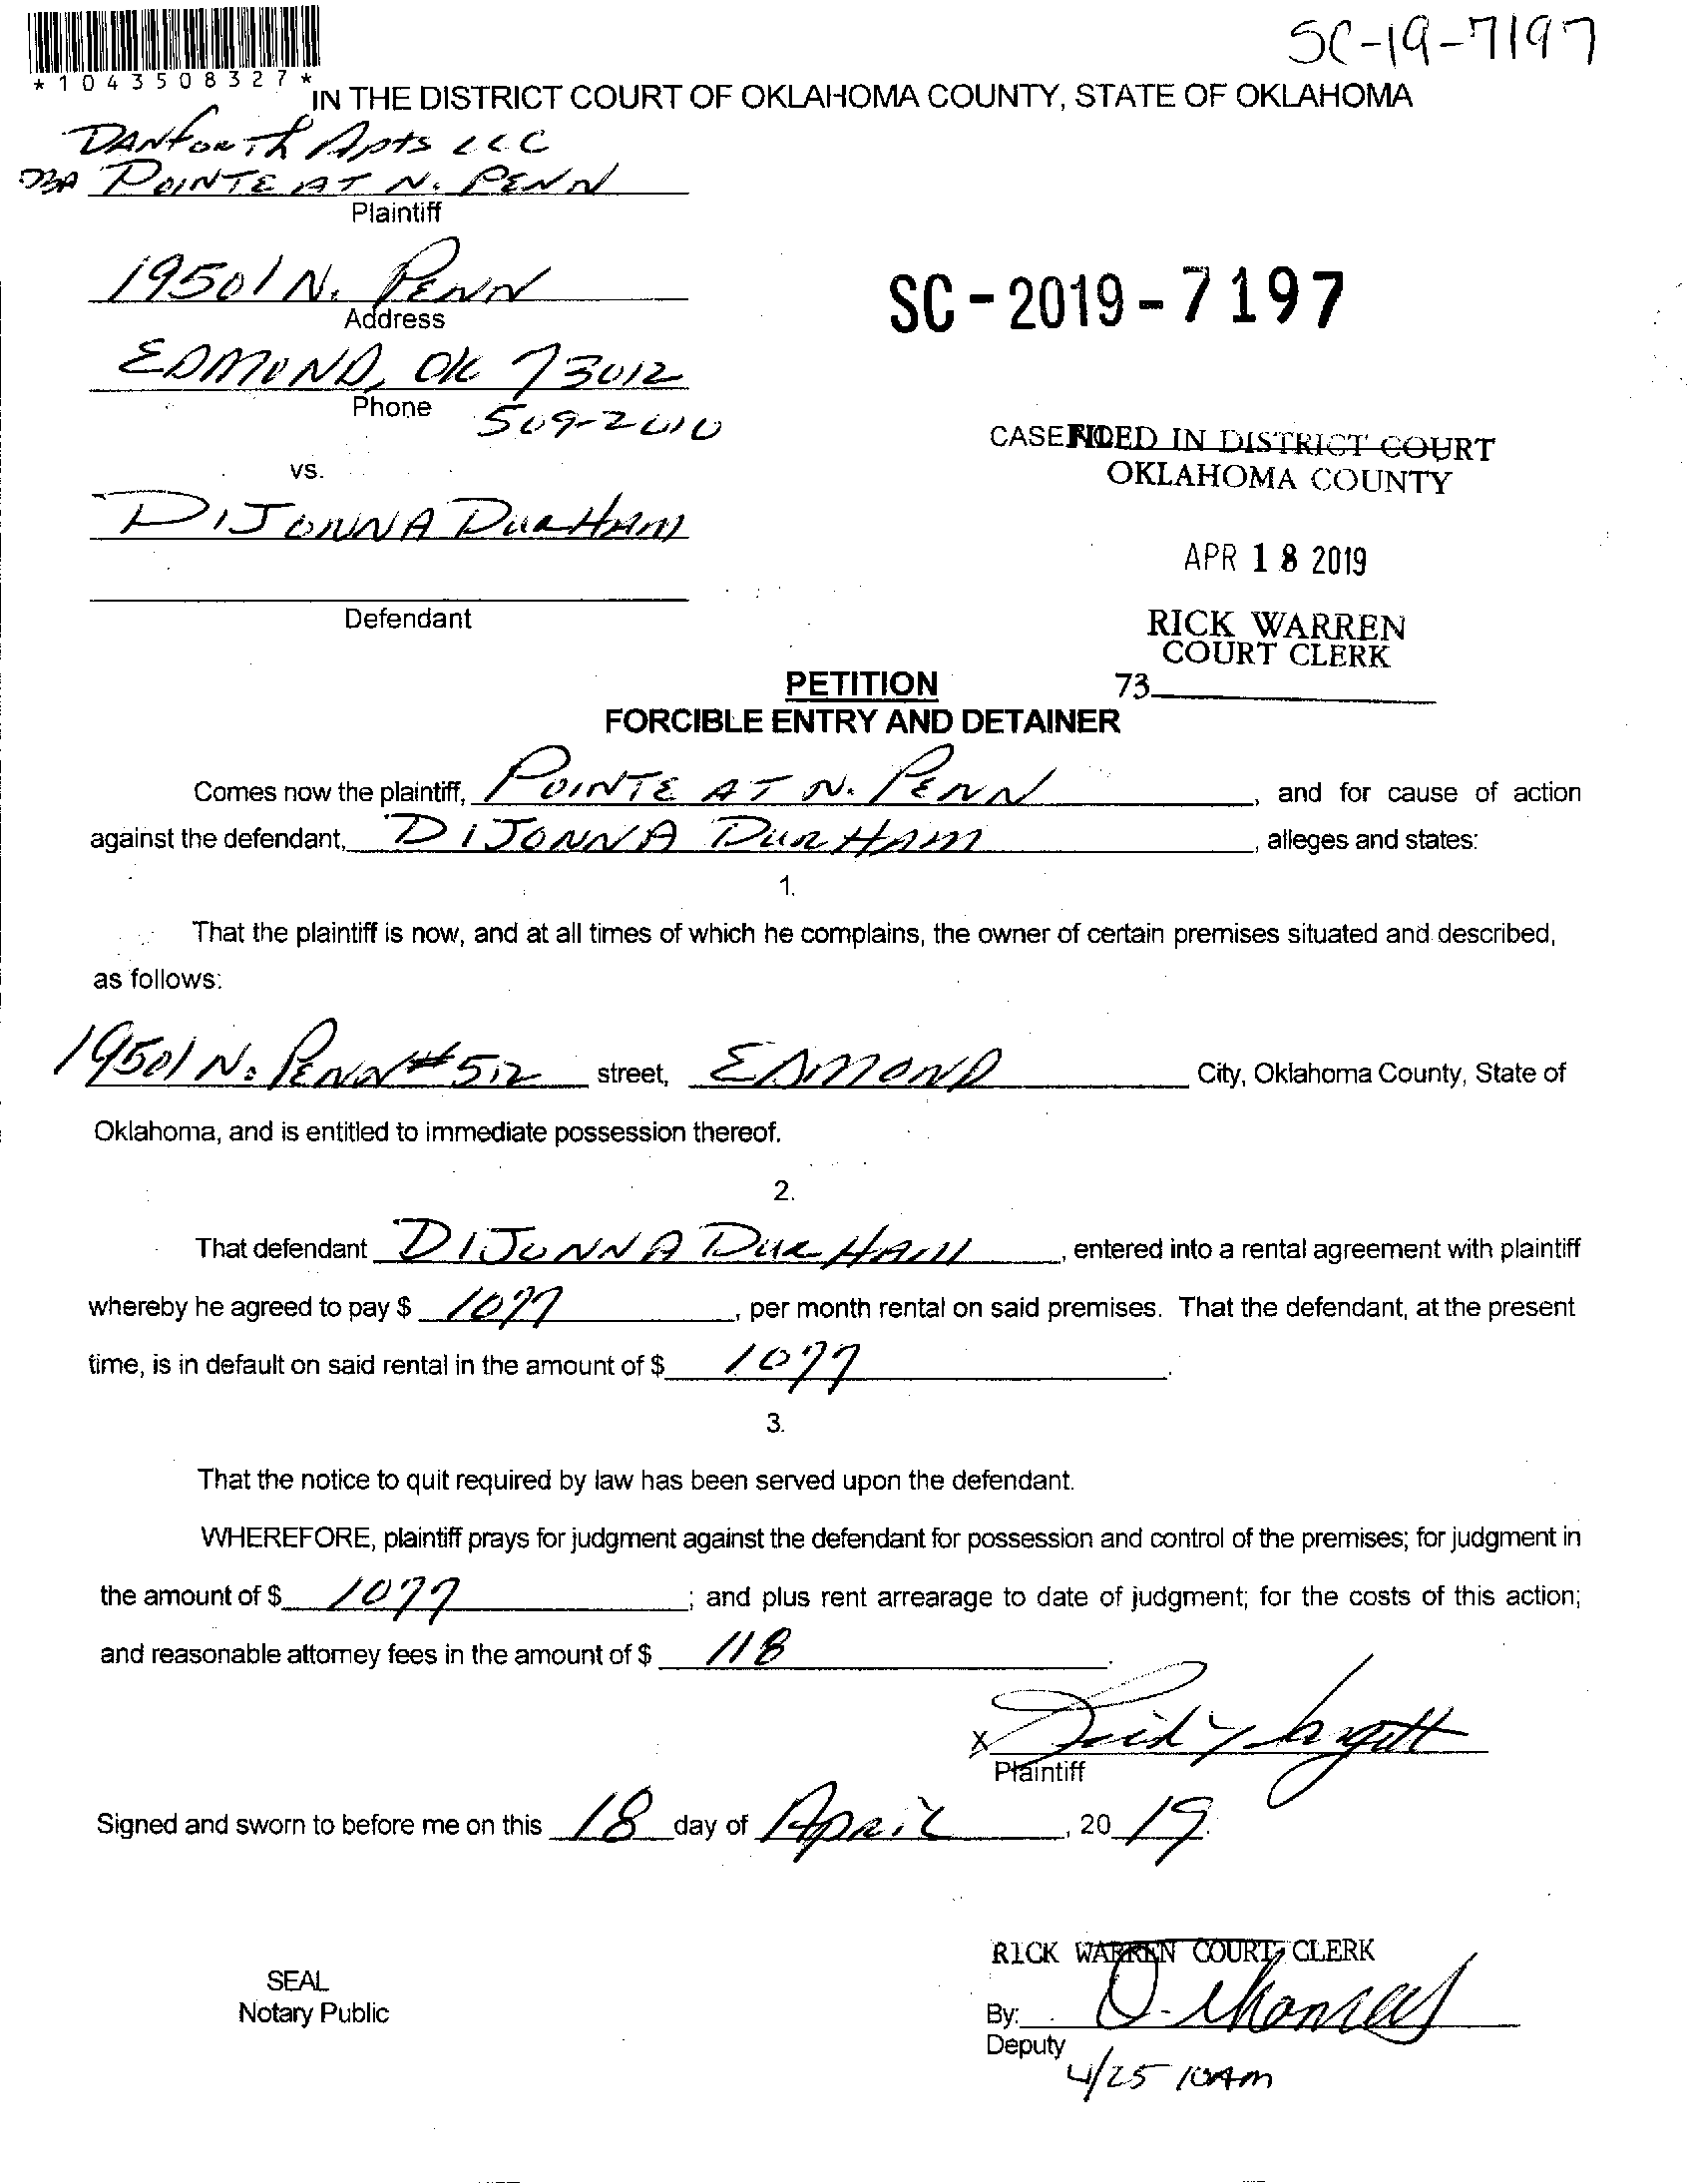 SC-19-7197
*1043508327*
IN THE DISTRICT COURT OF OKLAHOMA COUNTY, STATE OF OKLAHOMA
DANFORTH Apts LLC
DBA POINTE AT N. PENN
Plaintiff
19501 N. PENN
Address
SC-2019-7197
EDMOND, OK 73012
Phone 509-2010
CASE NO.
FILED IN DISTRICT COURT
OKLAHOMA COUNTY
vs.
DIJONNA DURHAM
APR 18 2019
Defendant
RICK WARREN
COURT CLERK
73
PETITION
FORCIBLE ENTRY AND DETAINER
Comes now the plaintiff, POINTE AT N. PENN, and for cause of action
against the defendant, DIJONNA DURHAM, alleges and states:
1.
That the plaintiff is now, and at all times of which he complains, the owner of certain premises situated and described,
as follows:
19501 N. PENN #512 street, EDMOND City, Oklahoma County, State of
Oklahoma, and is entitled to immediate possession thereof.
2.
That defendant DIJONNA DURHAM, entered into a rental agreement with plaintiff
whereby he agreed to pay $ 1077, per month rental on said premises. That the defendant, at the present
time, is in default on said rental in the amount of $ 1077.
3.
That the notice to quit required by law has been served upon the defendant.
WHEREFORE, plaintiff prays for judgment against the defendant for possession and control of the premises; for judgment in
the amount of $ 1077; and plus rent arrearage to date of judgment; for the costs of this action;
and reasonable attorney fees in the amount of $ 118.
X
Plaintiff
Signed and sworn to before me on this 18 day of April, 20 19.
RICK WARREN COURT CLERK
SEAL
Notary Public
By:
Deputy
4/25 10AM